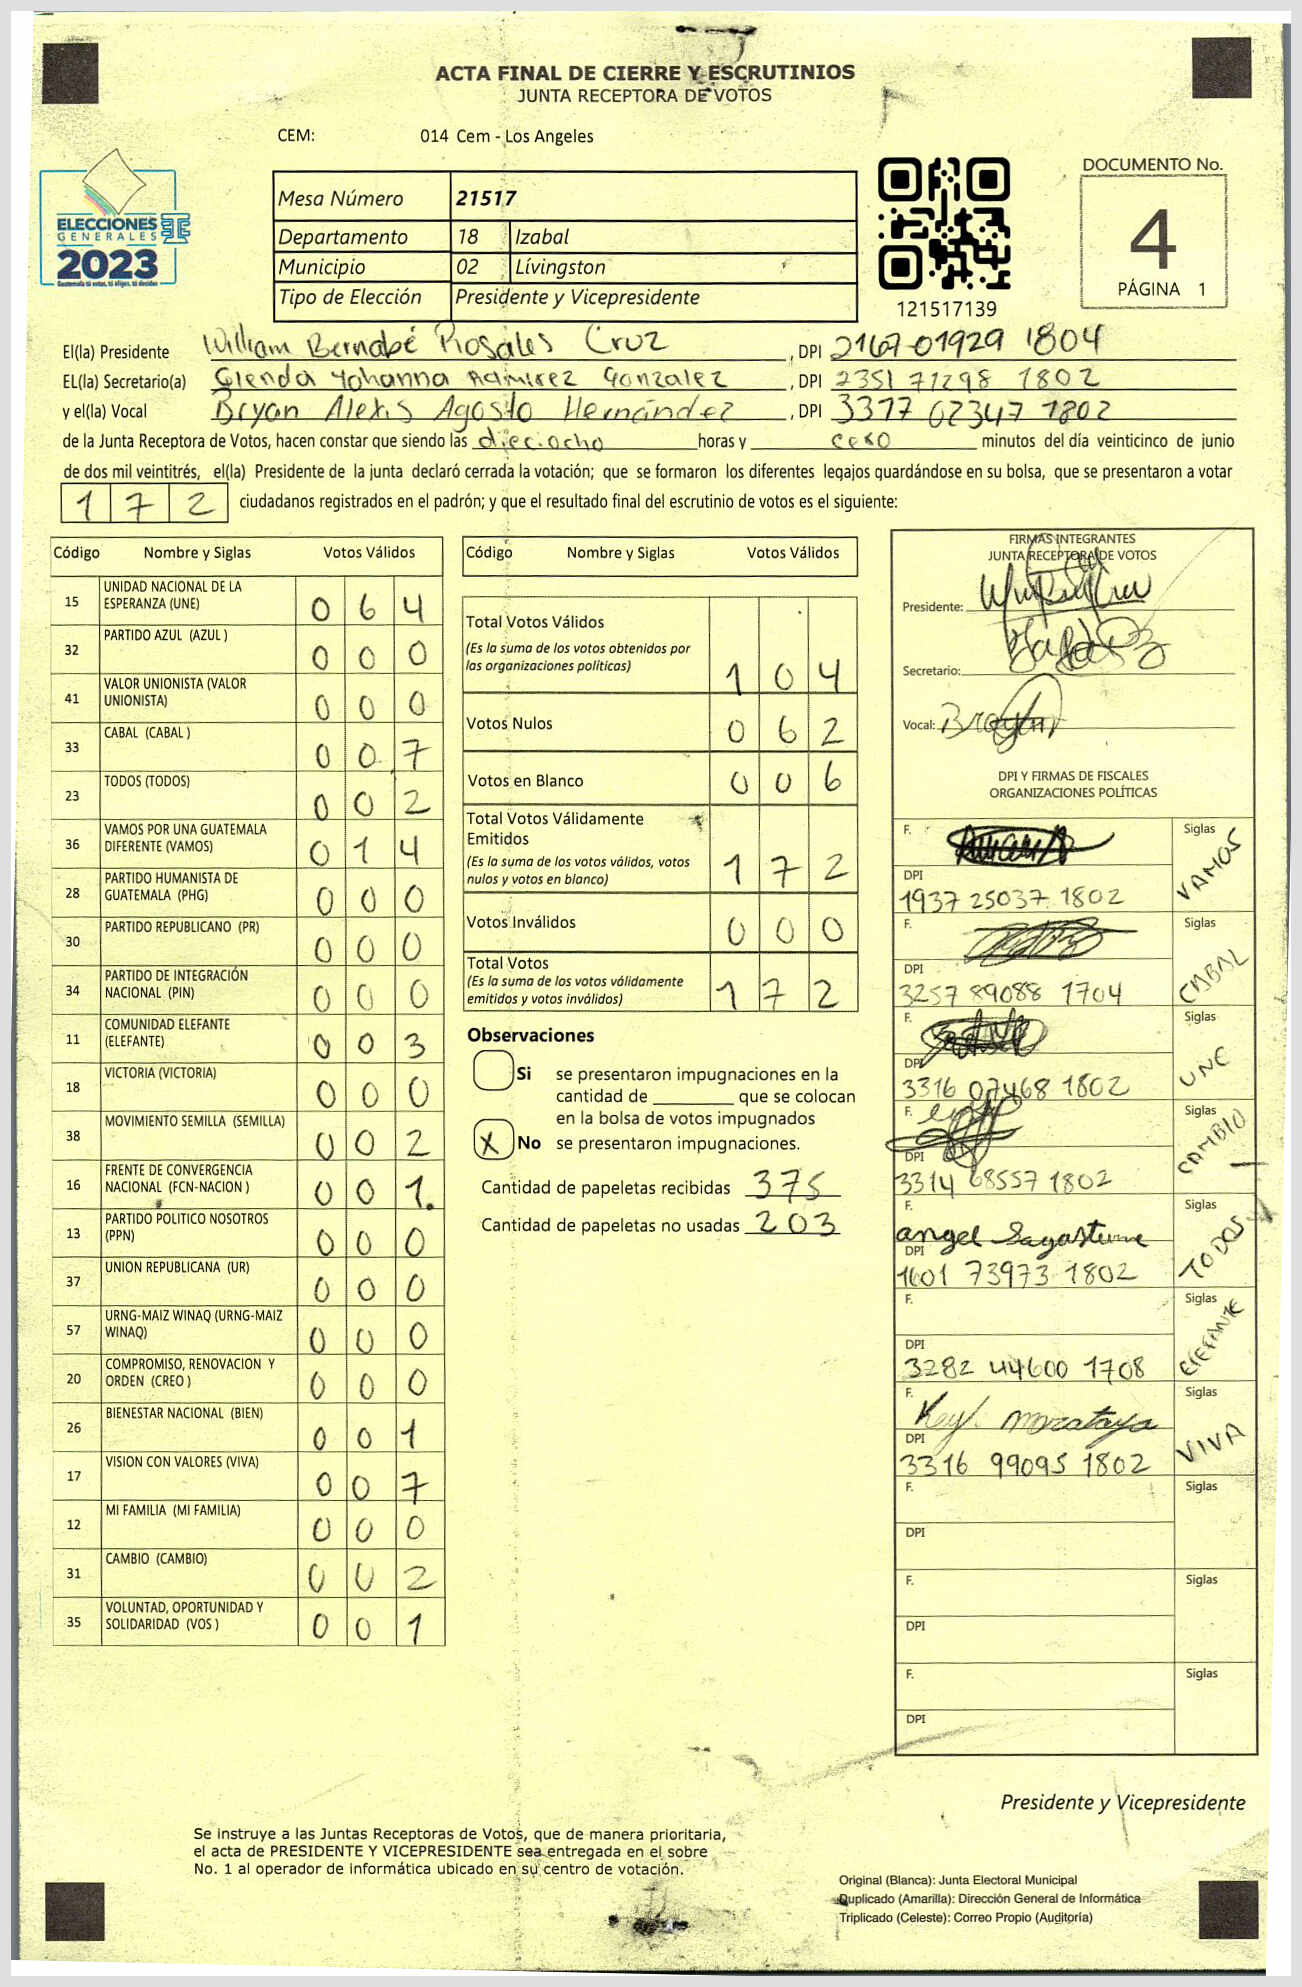 ACTA FINAL DE CIERRE Y ESCRUTINIOS
JUNTA RECEPTORA DE VOTOS
CEM: 014 Cem - Los Angeles
ELECCIONES
GENERALES
2023
Guatemala tú votas, tú eliges, tú decides
Mesa Número 21517
Departamento 18 Izabal
Municipio 02 Lívingston
Tipo de Elección Presidente y Vicepresidente
121517139
DOCUMENTO No.
4
PÁGINA 1
El(la) Presidente William Bernabé Rosales Cruz, DPI 2167 01929 1804
EL(la) Secretario(a) Glenda Yohanna Ramirez Gonzalez, DPI 2351 71298 1802
y el(la) Vocal Bryan Alexis Agosto Hernández, DPI 3377 02347 1802
de la Junta Receptora de Votos, hacen constar que siendo las dieciocho horas y cero minutos del día veinticinco de junio
de dos mil veintitrés, el(la) Presidente de la junta declaró cerrada la votación; que se formaron los diferentes legajos guardándose en su bolsa, que se presentaron a votar
172 ciudadanos registrados en el padrón; y que el resultado final del escrutinio de votos es el siguiente:
Código Nombre y Siglas Votos Válidos
15 UNIDAD NACIONAL DE LA ESPERANZA (UNE) 064
32 PARTIDO AZUL (AZUL ) 000
41 VALOR UNIONISTA (VALOR UNIONISTA) 000
33 CABAL (CABAL ) 007
23 TODOS (TODOS) 002
36 VAMOS POR UNA GUATEMALA DIFERENTE (VAMOS) 014
28 PARTIDO HUMANISTA DE GUATEMALA (PHG) 000
30 PARTIDO REPUBLICANO (PR) 000
34 PARTIDO DE INTEGRACIÓN NACIONAL (PIN) 000
11 COMUNIDAD ELEFANTE (ELEFANTE) 003
18 VICTORIA (VICTORIA) 000
38 MOVIMIENTO SEMILLA (SEMILLA) 002
16 FRENTE DE CONVERGENCIA NACIONAL (FCN-NACION ) 001.
13 PARTIDO POLITICO NOSOTROS (PPN) 000
37 UNION REPUBLICANA (UR) 000
57 URNG-MAIZ WINAQ (URNG-MAIZ WINAQ) 000
20 COMPROMISO, RENOVACION Y ORDEN (CREO ) 000
26 BIENESTAR NACIONAL (BIEN) 001
17 VISION CON VALORES (VIVA) 007
12 MI FAMILIA (MI FAMILIA) 000
31 CAMBIO (CAMBIO) 002
35 VOLUNTAD, OPORTUNIDAD Y SOLIDARIDAD (VOS ) 001
Código Nombre y Siglas Votos Válidos
Total Votos Válidos
(Es la suma de los votos obtenidos por
las organizaciones políticas) 104
Votos Nulos 062
Votos en Blanco 006
Total Votos Válidamente
Emitidos
(Es la suma de los votos válidos, votos
nulos y votos en blanco) 172
Votos Inválidos 000
Total Votos
(Es la suma de los votos válidamente
emitidos y votos inválidos) 172
Observaciones
Si se presentaron impugnaciones en la
cantidad de ________ que se colocan
en la bolsa de votos impugnados
X No se presentaron impugnaciones.
Cantidad de papeletas recibidas 375
Cantidad de papeletas no usadas 203
FIRMAS INTEGRANTES
JUNTA RECEPTORA DE VOTOS
Presidente:
Secretario:
Vocal:
DPI Y FIRMAS DE FISCALES
ORGANIZACIONES POLÍTICAS
F. Siglas VAMOS
DPI 1937 25037 1802
F. Siglas CABAL
DPI 3257 89088 1704
F. Siglas UNE
DPI 3316 07468 1802
F. Siglas CAMBIO
DPI 3314 68557 1802
F. angel Sagastume Siglas TODOS
DPI 1601 73973 1802
F. Siglas ELEFANTE
DPI 3282 44600 1708
F. Siglas VIVA
DPI 3316 99095 1802
F. Siglas
DPI
F. Siglas
DPI
F. Siglas
DPI
Presidente y Vicepresidente
Se instruye a las Juntas Receptoras de Votos, que de manera prioritaria,
el acta de PRESIDENTE Y VICEPRESIDENTE sea entregada en el sobre
No. 1 al operador de informática ubicado en su centro de votación.
Original (Blanca): Junta Electoral Municipal
Duplicado (Amarilla): Dirección General de Informática
Triplicado (Celeste): Correo Propio (Auditoría)